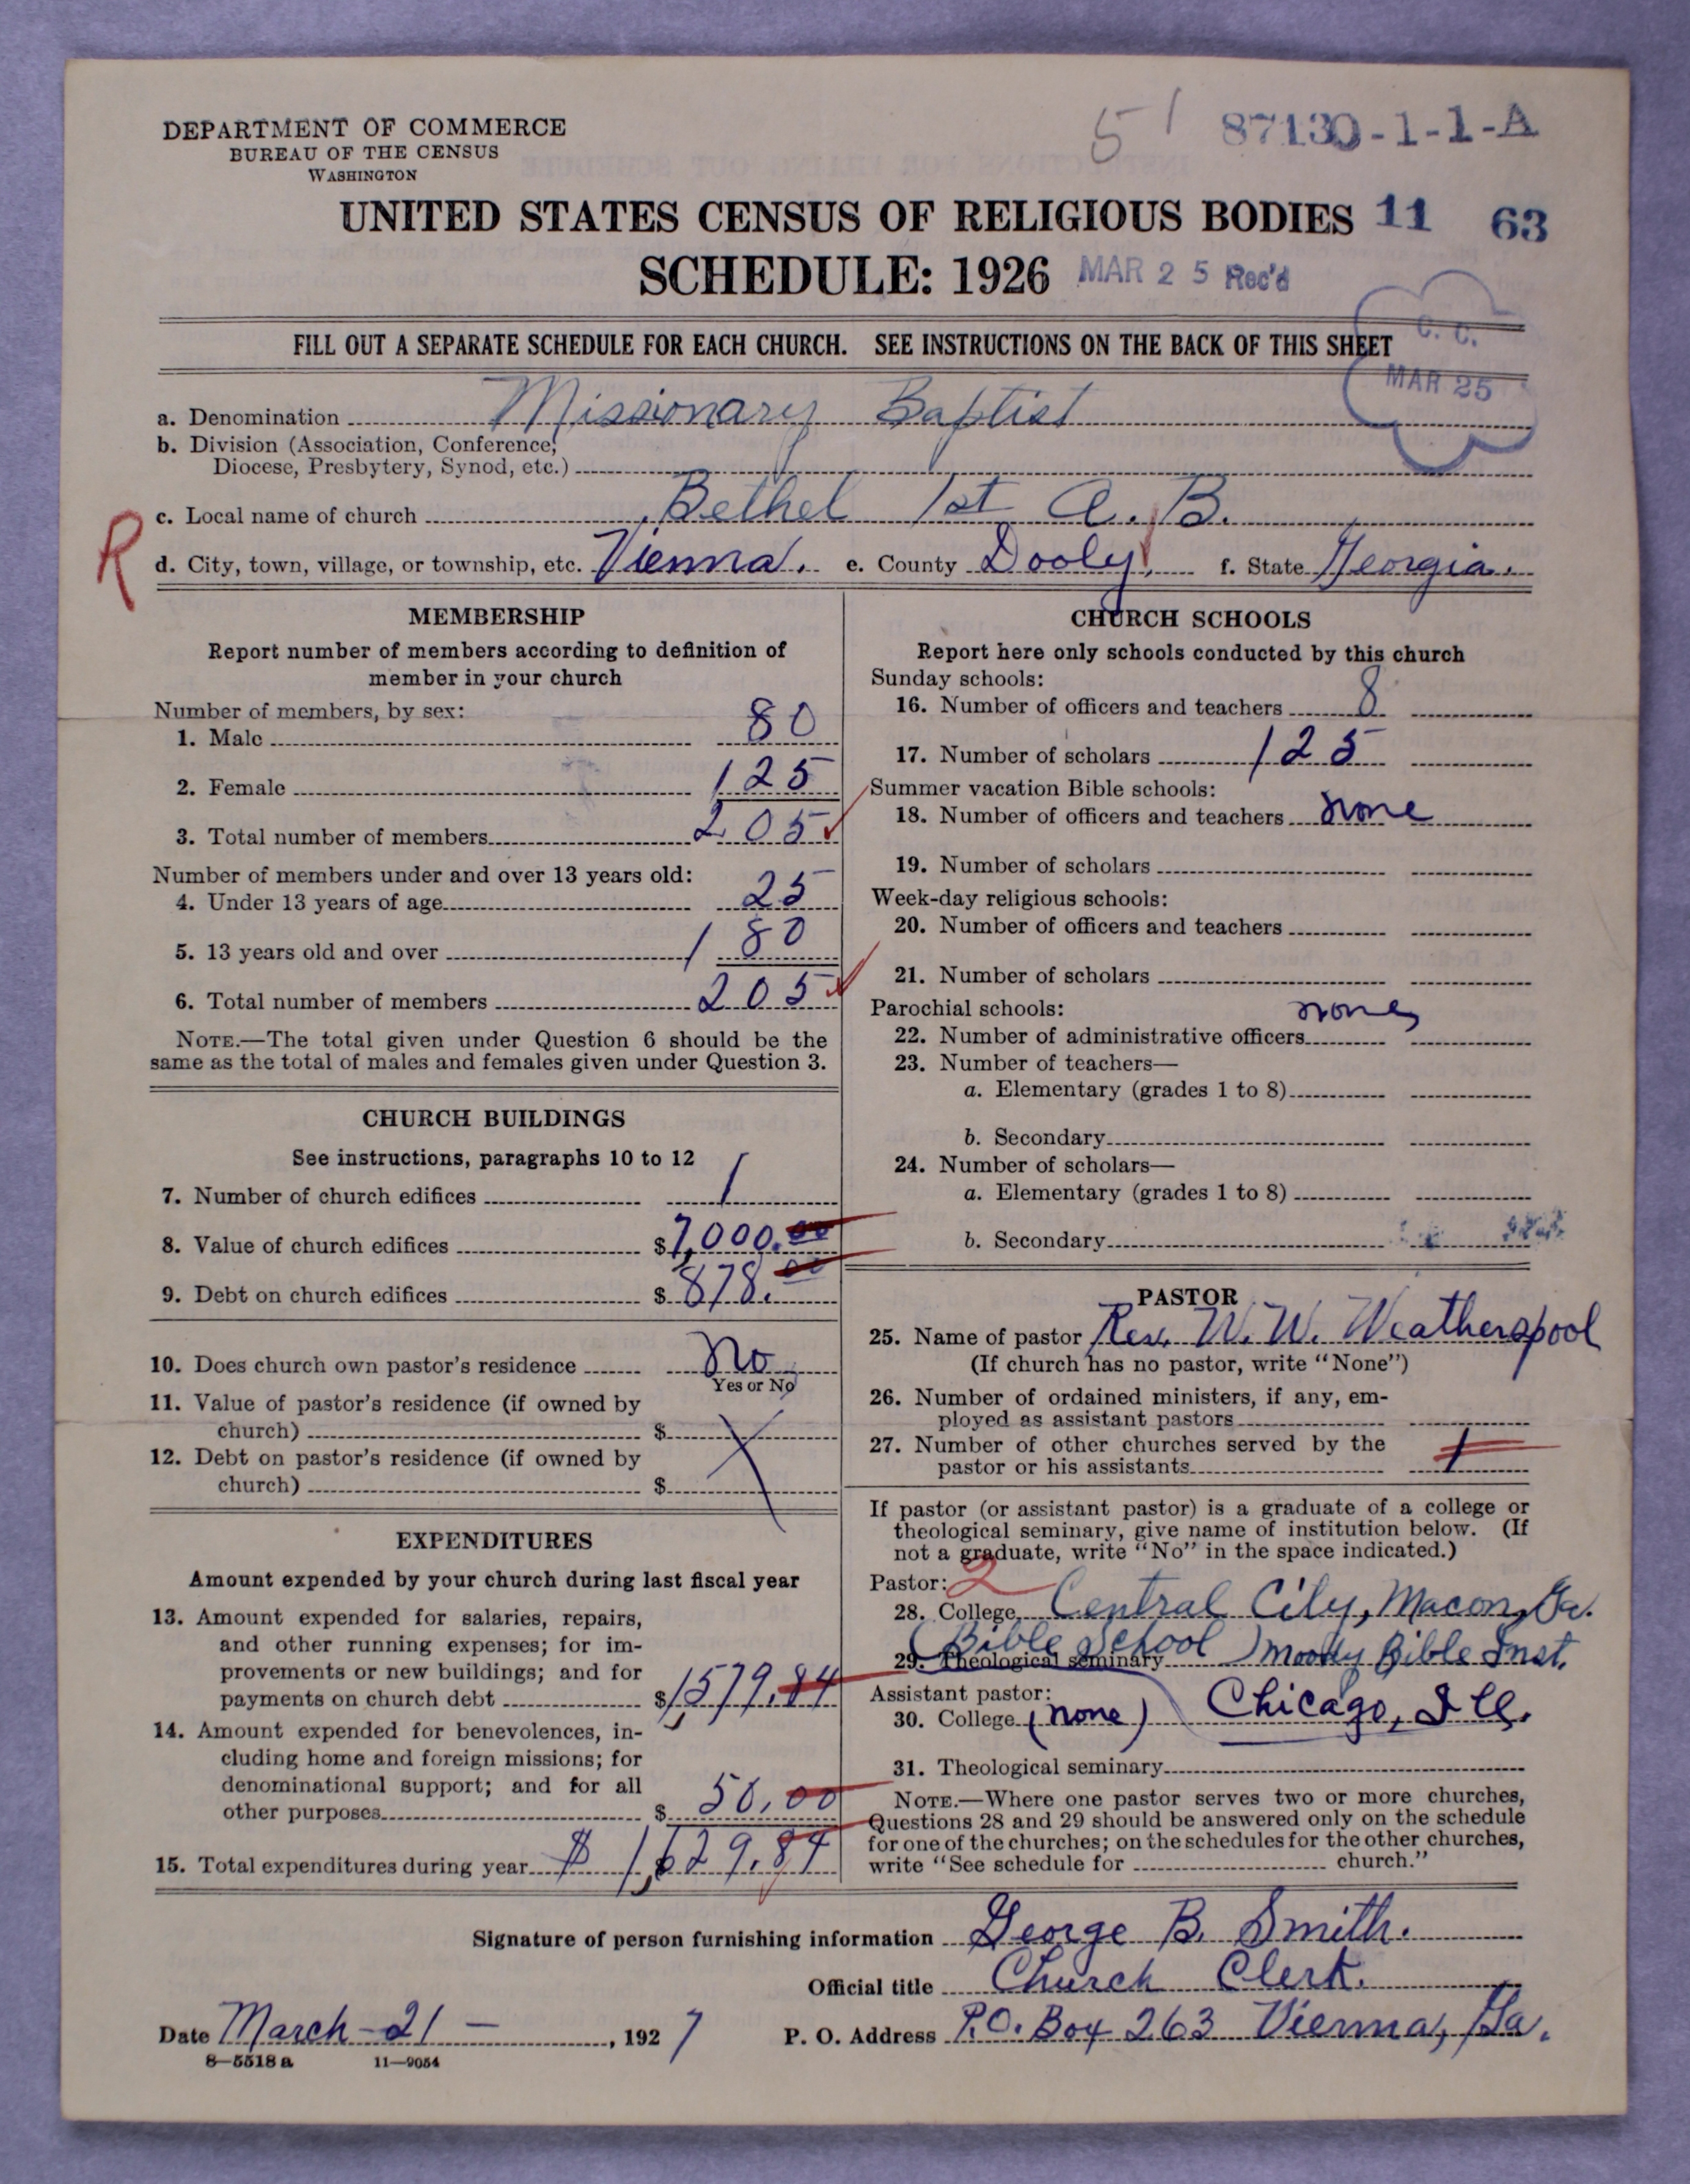 51
87130-1-1-A
DEPARTMENT OF COMMERCE
BUREAU OF THE CENSUS
WASHINGTON
UNITED STATES CENSUS OF RELIGIOUS BODIES 11 63
SCHEDULE: 1926 MAR 25 Rec'd
FILL OUT A SEPARATE SCHEDULE FOR EACH CHURCH. SEE INSTRUCTIONS ON THE BACK OF THIS SHEET
C. C.
MAR 25
a. Denomination Missionary Baptist
b. Division (Association, Conference,
Diocese, Presbytery, Synod, etc.)
c. Local name of church Bethel 1st A. B.
R
d. City, town, village, or township, etc. Vienna. e. County Dooly, f. State Georgia.
MEMBERSHIP
Report number of members according to definition of
member in your church
Number of members, by sex:
1. Male 80
2. Female 125
3. Total number of members 205
Number of members under and over 13 years old:
4. Under 13 years of age 25
5. 13 years old and over 180
6. Total number of members 205
NOTE.—The total given under Question 6 should be the
same as the total of males and females given under Question 3.
CHURCH BUILDINGS
See instructions, paragraphs 10 to 12
7. Number of church edifices 1
8. Value of church edifices $7,000.00
9. Debt on church edifices $878.00
10. Does church own pastor's residence No
Yes or No
11. Value of pastor's residence (if owned by
church) $
12. Debt on pastor's residence (if owned by
church) $
EXPENDITURES
Amount expended by your church during last fiscal year
13. Amount expended for salaries, repairs,
and other running expenses; for im-
provements or new buildings; and for
payments on church debt $1,579.84
14. Amount expended for benevolences, in-
cluding home and foreign missions; for
denominational support; and for all
other purposes $50.00
15. Total expenditures during year $1,629.84
CHURCH SCHOOLS
Report here only schools conducted by this church
Sunday schools:
16. Number of officers and teachers 8
17. Number of scholars 125
Summer vacation Bible schools:
18. Number of officers and teachers none
19. Number of scholars
Week-day religious schools:
20. Number of officers and teachers
21. Number of scholars
Parochial schools: none
22. Number of administrative officers
23. Number of teachers—
a. Elementary (grades 1 to 8)
b. Secondary
24. Number of scholars—
a. Elementary (grades 1 to 8)
b. Secondary
PASTOR
25. Name of pastor Rev. W. W. Weatherspool
(If church has no pastor, write "None")
26. Number of ordained ministers, if any, em-
ployed as assistant pastors
27. Number of other churches served by the
pastor or his assistants 1
If pastor (or assistant pastor) is a graduate of a college or
theological seminary, give name of institution below. (If
not a graduate, write "No" in the space indicated.)
Pastor: 2
28. College Central City, Macon, Ga.
(Bible School)
29. Theological seminary Moody Bible Inst.
Assistant pastor:
30. College (none) Chicago, Ill.
31. Theological seminary
NOTE.—Where one pastor serves two or more churches,
Questions 28 and 29 should be answered only on the schedule
for one of the churches; on the schedules for the other churches,
write "See schedule for church."
Signature of person furnishing information George B. Smith.
Official title Church Clerk.
Date March-21-, 1927 P. O. Address P.O. Box 263 Vienna, Ga.
8—5518 a 11—9054